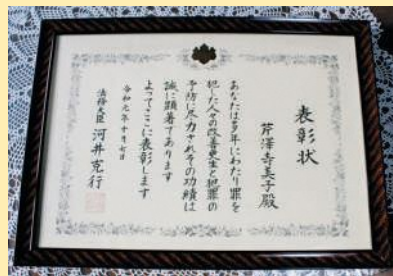 表彰状
芹澤寿美子殿
あなたは多年にわたり罪を
犯した人々の改善更生と犯罪の
予防に尽力されその功績は
誠に顕著であります
よってここに表彰します
令和元年十月七日
法務大臣 河井克行